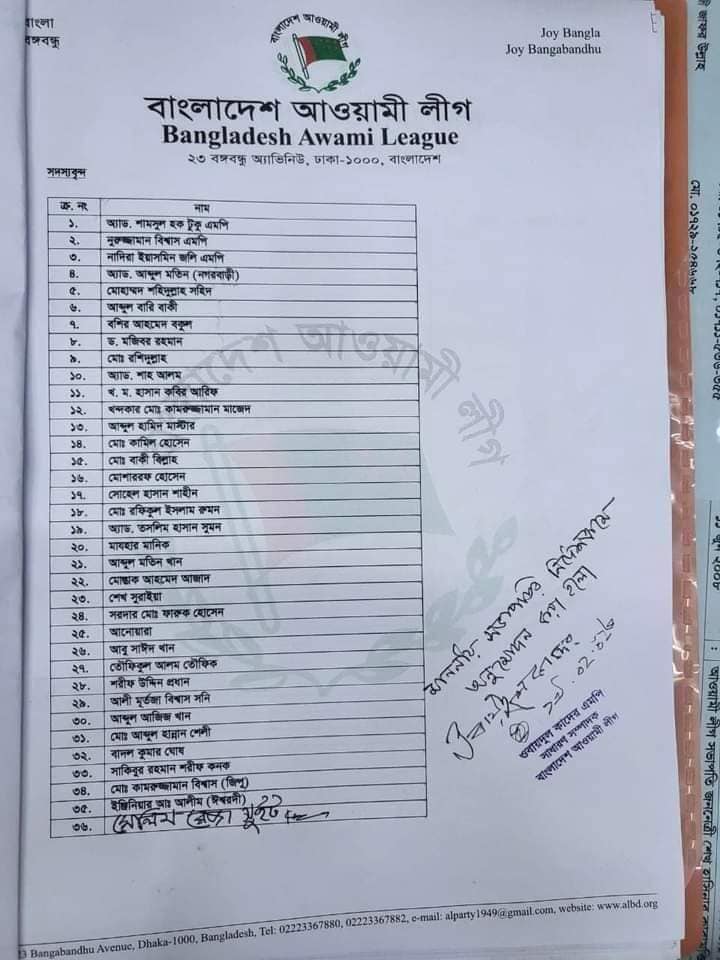 বাংলা
বঙ্গবন্ধু
Joy Bangla
Joy Bangabandhu
বাংলাদেশ আওয়ামী লীগ
বাংলাদেশ আওয়ামী লীগ
Bangladesh Awami League
২৩ বঙ্গবন্ধু অ্যাভিনিউ, ঢাকা-১০০০, বাংলাদেশ
সদস্যবৃন্দ
ক্র. নং নাম
১. অ্যাড. শামসুল হক টুকু এমপি
২. নুরুজ্জামান বিশ্বাস এমপি
৩. নাদিরা ইয়াসমিন জলি এমপি
৪. অ্যাড. আব্দুল মতিন (নগরবাড়ী)
৫. মোহাম্মদ শহিদুল্লাহ সহিদ
৬. আব্দুল বারি বাকী
৭. বশির আহমেদ বকুল
৮. ড. মজিবর রহমান
৯. মোঃ রশিদুল্লাহ
১০. অ্যাড. শাহ আলম
১১. খ. ম. হাসান কবির আরিফ
১২. খন্দকার মোঃ কামরুজ্জামান মাজেদ
১৩. আব্দুল হামিদ মাস্টার
১৪. মোঃ কামিল হোসেন
১৫. মোঃ বাকী বিল্লাহ
১৬. মোশাররফ হোসেন
১৭. সোহেল হাসান শাহীন
১৮. মোঃ রফিকুল ইসলাম রুমন
১৯. অ্যাড. তসলিম হাসান সুমন
২০. মাযহার মানিক
২১. আব্দুল মতিন খান
২২. মোস্তাক আহমেদ আজাদ
২৩. শেখ সুরাইয়া
২৪. সরদার মোঃ ফারুক হোসেন
২৫. আনোয়ারা
২৬. আবু সাঈদ খান
২৭. তৌফিকুল আলম তৌফিক
২৮. শরীফ উদ্দিন প্রধান
২৯. আলী মূর্তজা বিশ্বাস সনি
৩০. আব্দুল আজিজ খান
৩১. মোঃ আব্দুল হান্নান শেলী
৩২. বাদল কুমার ঘোষ
৩৩. সাকিবুর রহমান শরীফ কনক
৩৪. মোঃ কামরুজ্জামান বিশ্বাস (জিপু)
৩৫. ইঞ্জিনিয়ার আঃ আলীম (ঈশ্বরদী)
৩৬. সেলিম রেজা সুইট
মাননীয় সভাপতির নির্দেশক্রমে
অনুমোদন করা হলো
ওবায়দুল কাদের
ওবায়দুল কাদের এমপি
সাধারণ সম্পাদক
বাংলাদেশ আওয়ামী লীগ
3 Bangabandhu Avenue, Dhaka-1000, Bangladesh, Tel: 02223367880, 02223367882, e-mail: alparty1949@gmail.com, website: www.albd.org